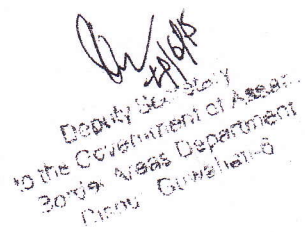 Deputy Secretary
to the Government of Assam
Border Areas Department
Dispur Guwahati-6